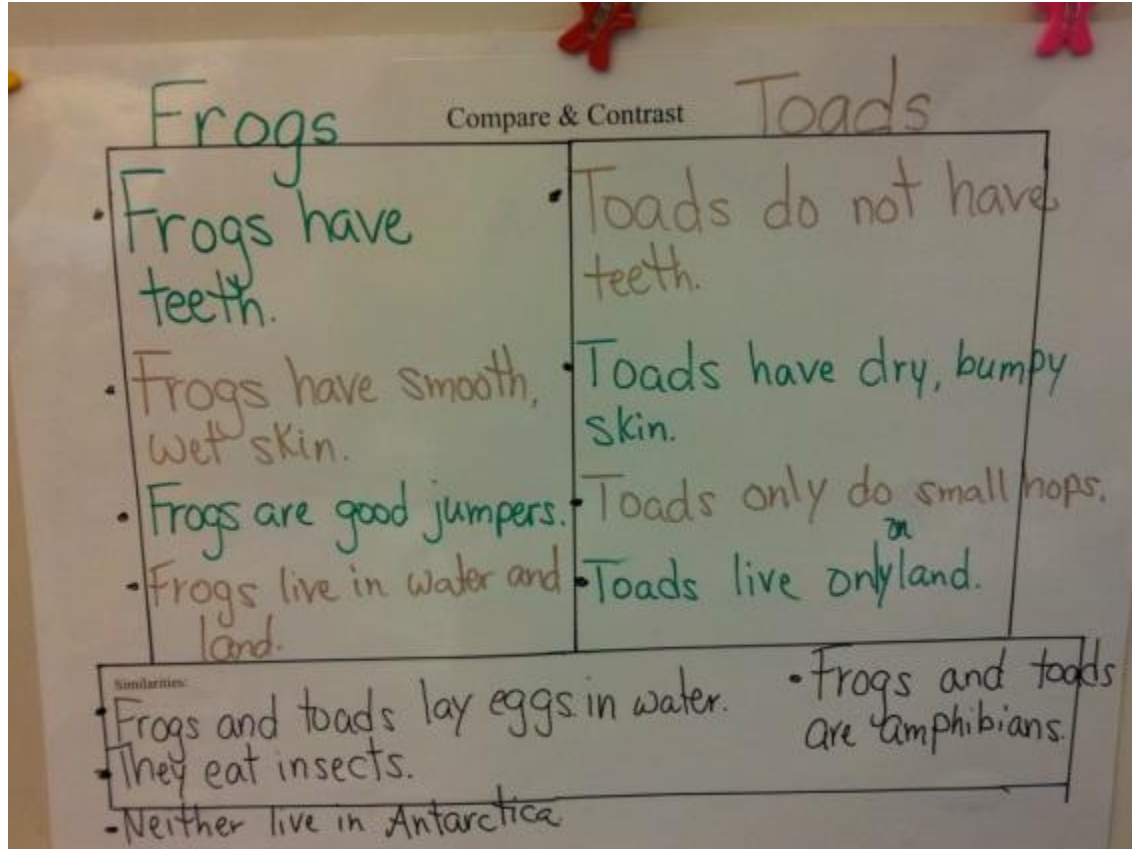 Frogs Compare & Contrast Toads
Frogs have
teeth.
Frogs have smooth,
wet skin.
Frogs are good jumpers.
Frogs live in water and
land.
Toads do not have
teeth.
Toads have dry, bumpy
skin.
Toads only do small hops.
Toads live only on land.
Similarities:
Frogs and toads lay eggs in water.
They eat insects.
Neither live in Antarctica
Frogs and toads
are amphibians.